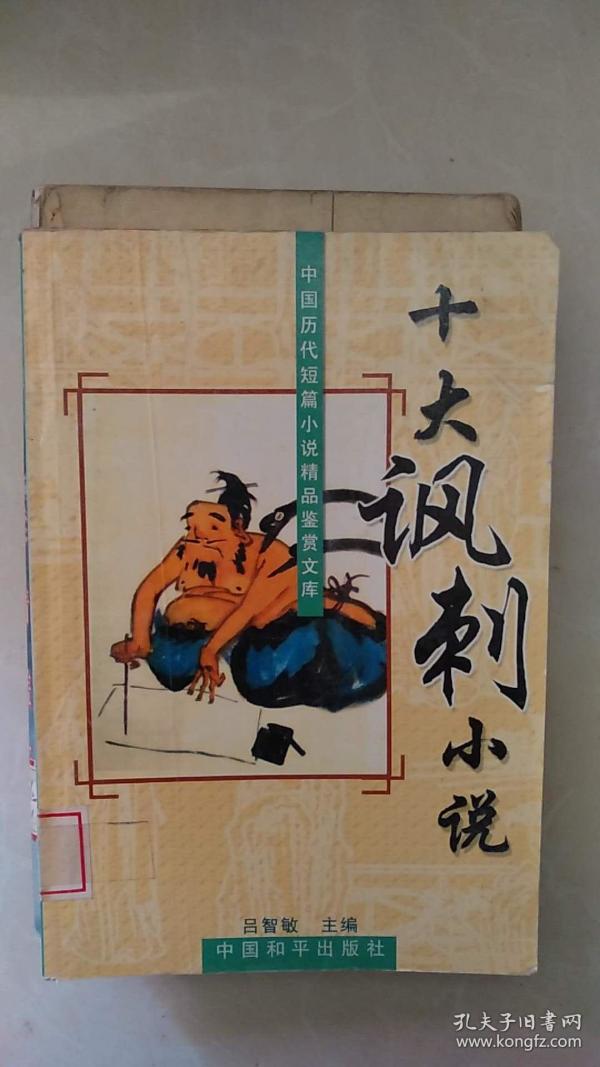 中国历代短篇小说精品鉴赏文库
十大讽刺小说
吕智敏 主编
中国和平出版社
孔夫子旧書网
www.kongfz.com